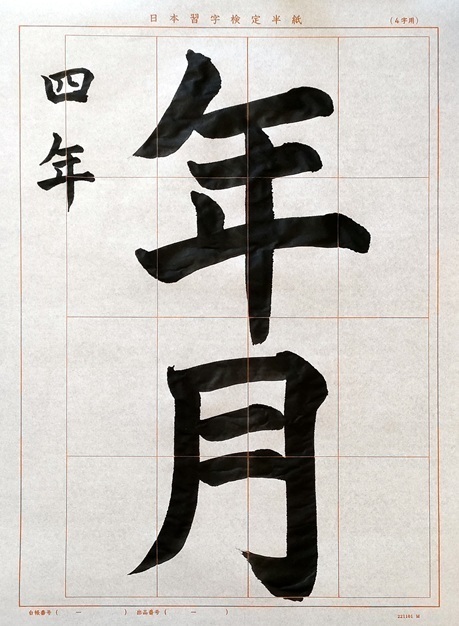 日本習字検定半紙
(4字用)
年月
四年
台帳番号( ー )
出品番号( ー )
221101 M